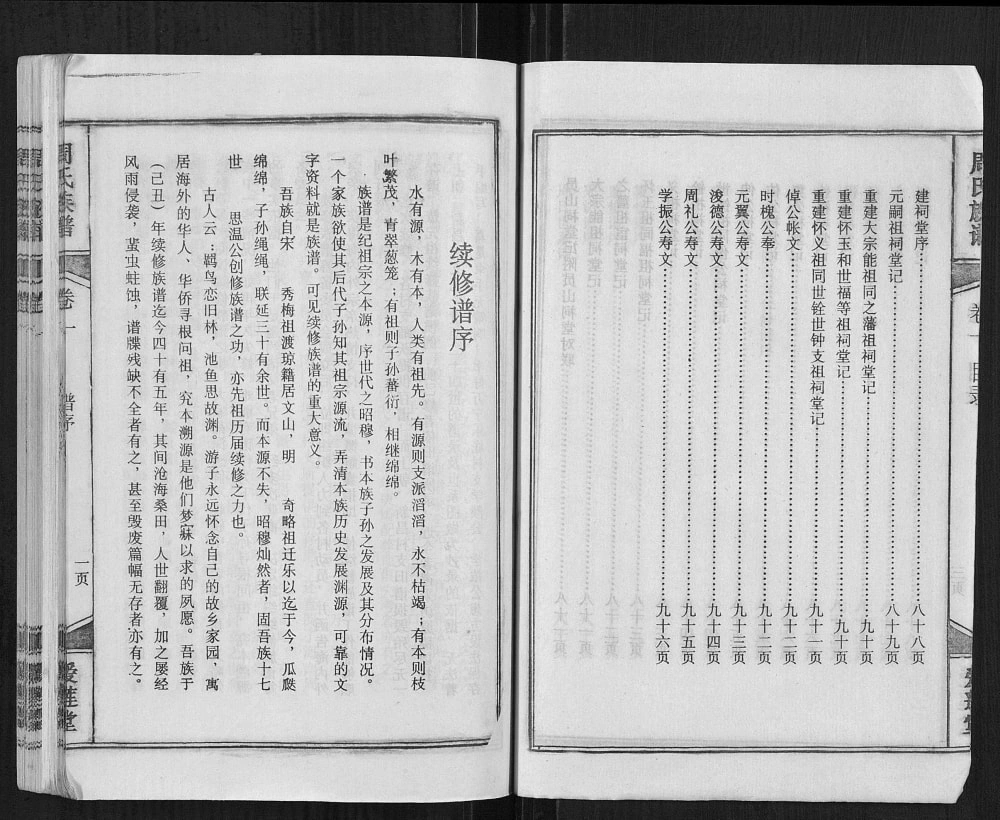 周氏族谱
卷一 目录
三页
爱莲堂
建祠堂序……八十八页
元嗣祖祠堂记……八十九页
重建大宗能祖同之藩祖祠堂记……九十页
重建怀玉和世福等祖祠堂记……九十页
重建怀义祖同世铨世钟支祖祠堂记……九十一页
倬公帐文……九十二页
时槐公奉……九十二页
元翼公寿文……九十三页
浚德公寿文……九十四页
周礼公寿文……九十五页
学振公寿文……九十六页
续修谱序
水有源，木有本，人类有祖先。有源则支派滔滔，永不枯竭；有本则枝
叶繁茂，青翠葱笼；有祖则子孙蕃衍，相继绵绵。
族谱是纪祖宗之本源，序世代之昭穆，书本族子孙之发展及其分布情况。
一个家族欲使其后代子孙知其祖宗源流，弄清本族历史发展渊源，可靠的文
字资料就是族谱。可见续修族谱的重大意义。
吾族自宋 秀梅祖渡琼籍居文山，明 奇略祖迁乐以迄于今，瓜瓞
绵绵，子孙绳绳，联延三十有余世。而本源不失，昭穆灿然者，固吾族十七
世 思温公创修族谱之功，亦先祖历届续修之力也。
古人云：鹍鸟恋旧林，池鱼思故渊。游子永远怀念自己的故乡家园，寓
居海外的华人、华侨寻根问祖，究本溯源是他们梦寐以求的夙愿。吾族于
（己丑）年续修族谱迄今四十有五年，其间沧海桑田，人世翻覆，加之屡经
风雨侵袭，蚩虫蛀蚀，谱牒残缺不全者有之，甚至毁废篇幅无存者亦有之。
周氏族谱
卷一
谱序
一页
爱莲堂